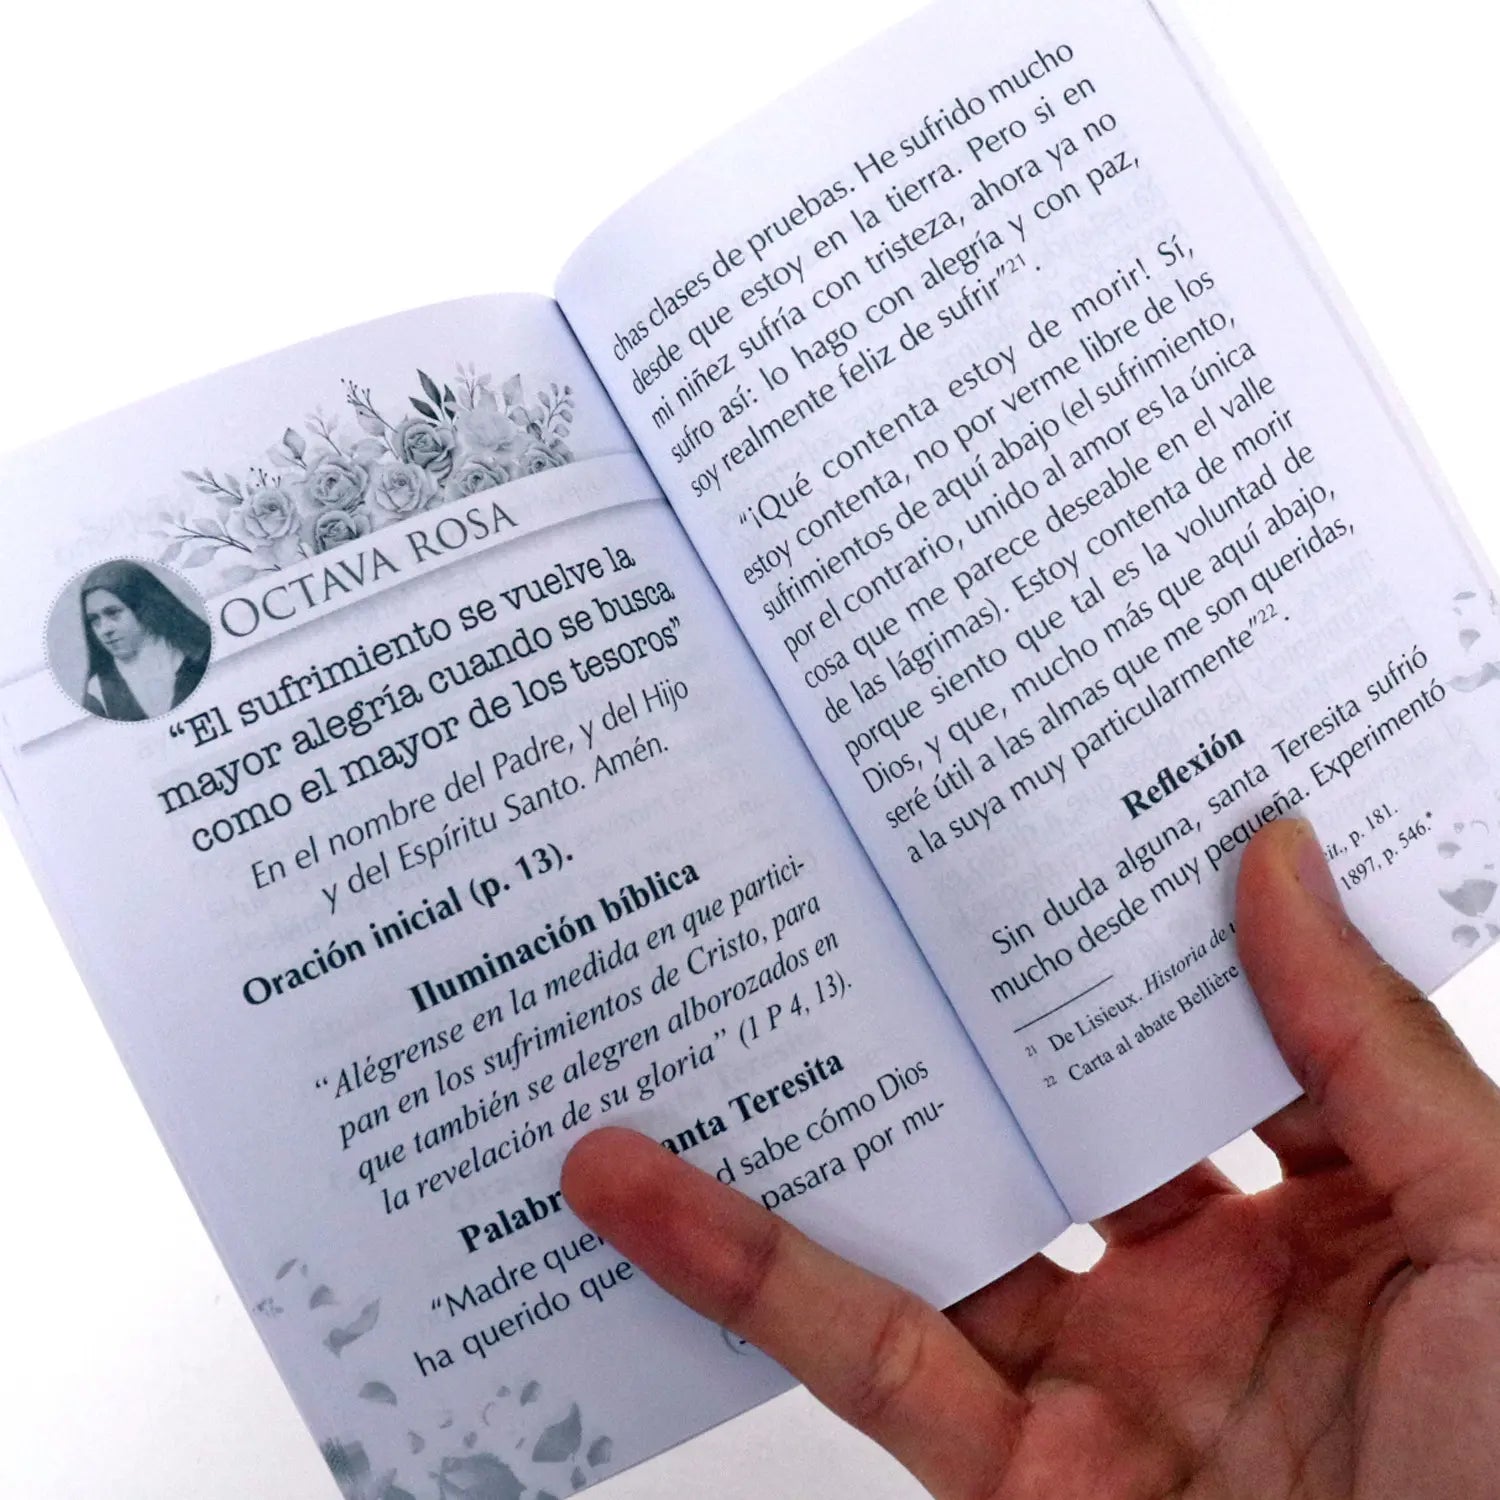 OCTAVA ROSA
“El sufrimiento se vuelve la
mayor alegría cuando se busca
como el mayor de los tesoros”
En el nombre del Padre, y del Hijo
y del Espíritu Santo. Amén.
Oración inicial (p. 13).
Iluminación bíblica
“Alégrense en la medida en que partici-
pan en los sufrimientos de Cristo, para
que también se alegren alborozados en
la revelación de su gloria” (1 P 4, 13).
Teresita
“Madre sabe cómo Dios
ha querido que pasara por mu-
chas clases de pruebas. He sufrido mucho
desde que estoy en la tierra. Pero si en
mi niñez sufría con tristeza, ahora ya no
sufro así: lo hago con alegría y con paz,
soy realmente feliz de sufrir”21 .
“¡Qué contenta estoy de morir! Sí,
estoy contenta, no por verme libre de los
sufrimientos de aquí abajo (el sufrimiento,
por el contrario, unido al amor es la única
cosa que me parece deseable en el valle
de las lágrimas). Estoy contenta de morir
porque siento que tal es la voluntad de
Dios, y que, mucho más que aquí abajo,
seré útil a las almas que me son queridas,
a la suya muy particularmente”22 .
Reflexión
Sin duda alguna, santa Teresita sufrió
mucho desde muy pequeña. Experimentó
21 De Lisieux. Historia de p. 181.
22 Carta al abate Bellière 1897, p. 546.*